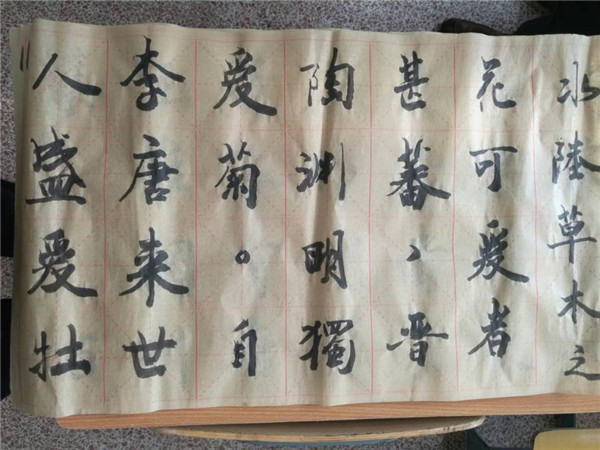 水陸草木之
花可爱者
甚蕃、晋
陶渊明獨
爱菊。自
李唐来世
人盛爱牡